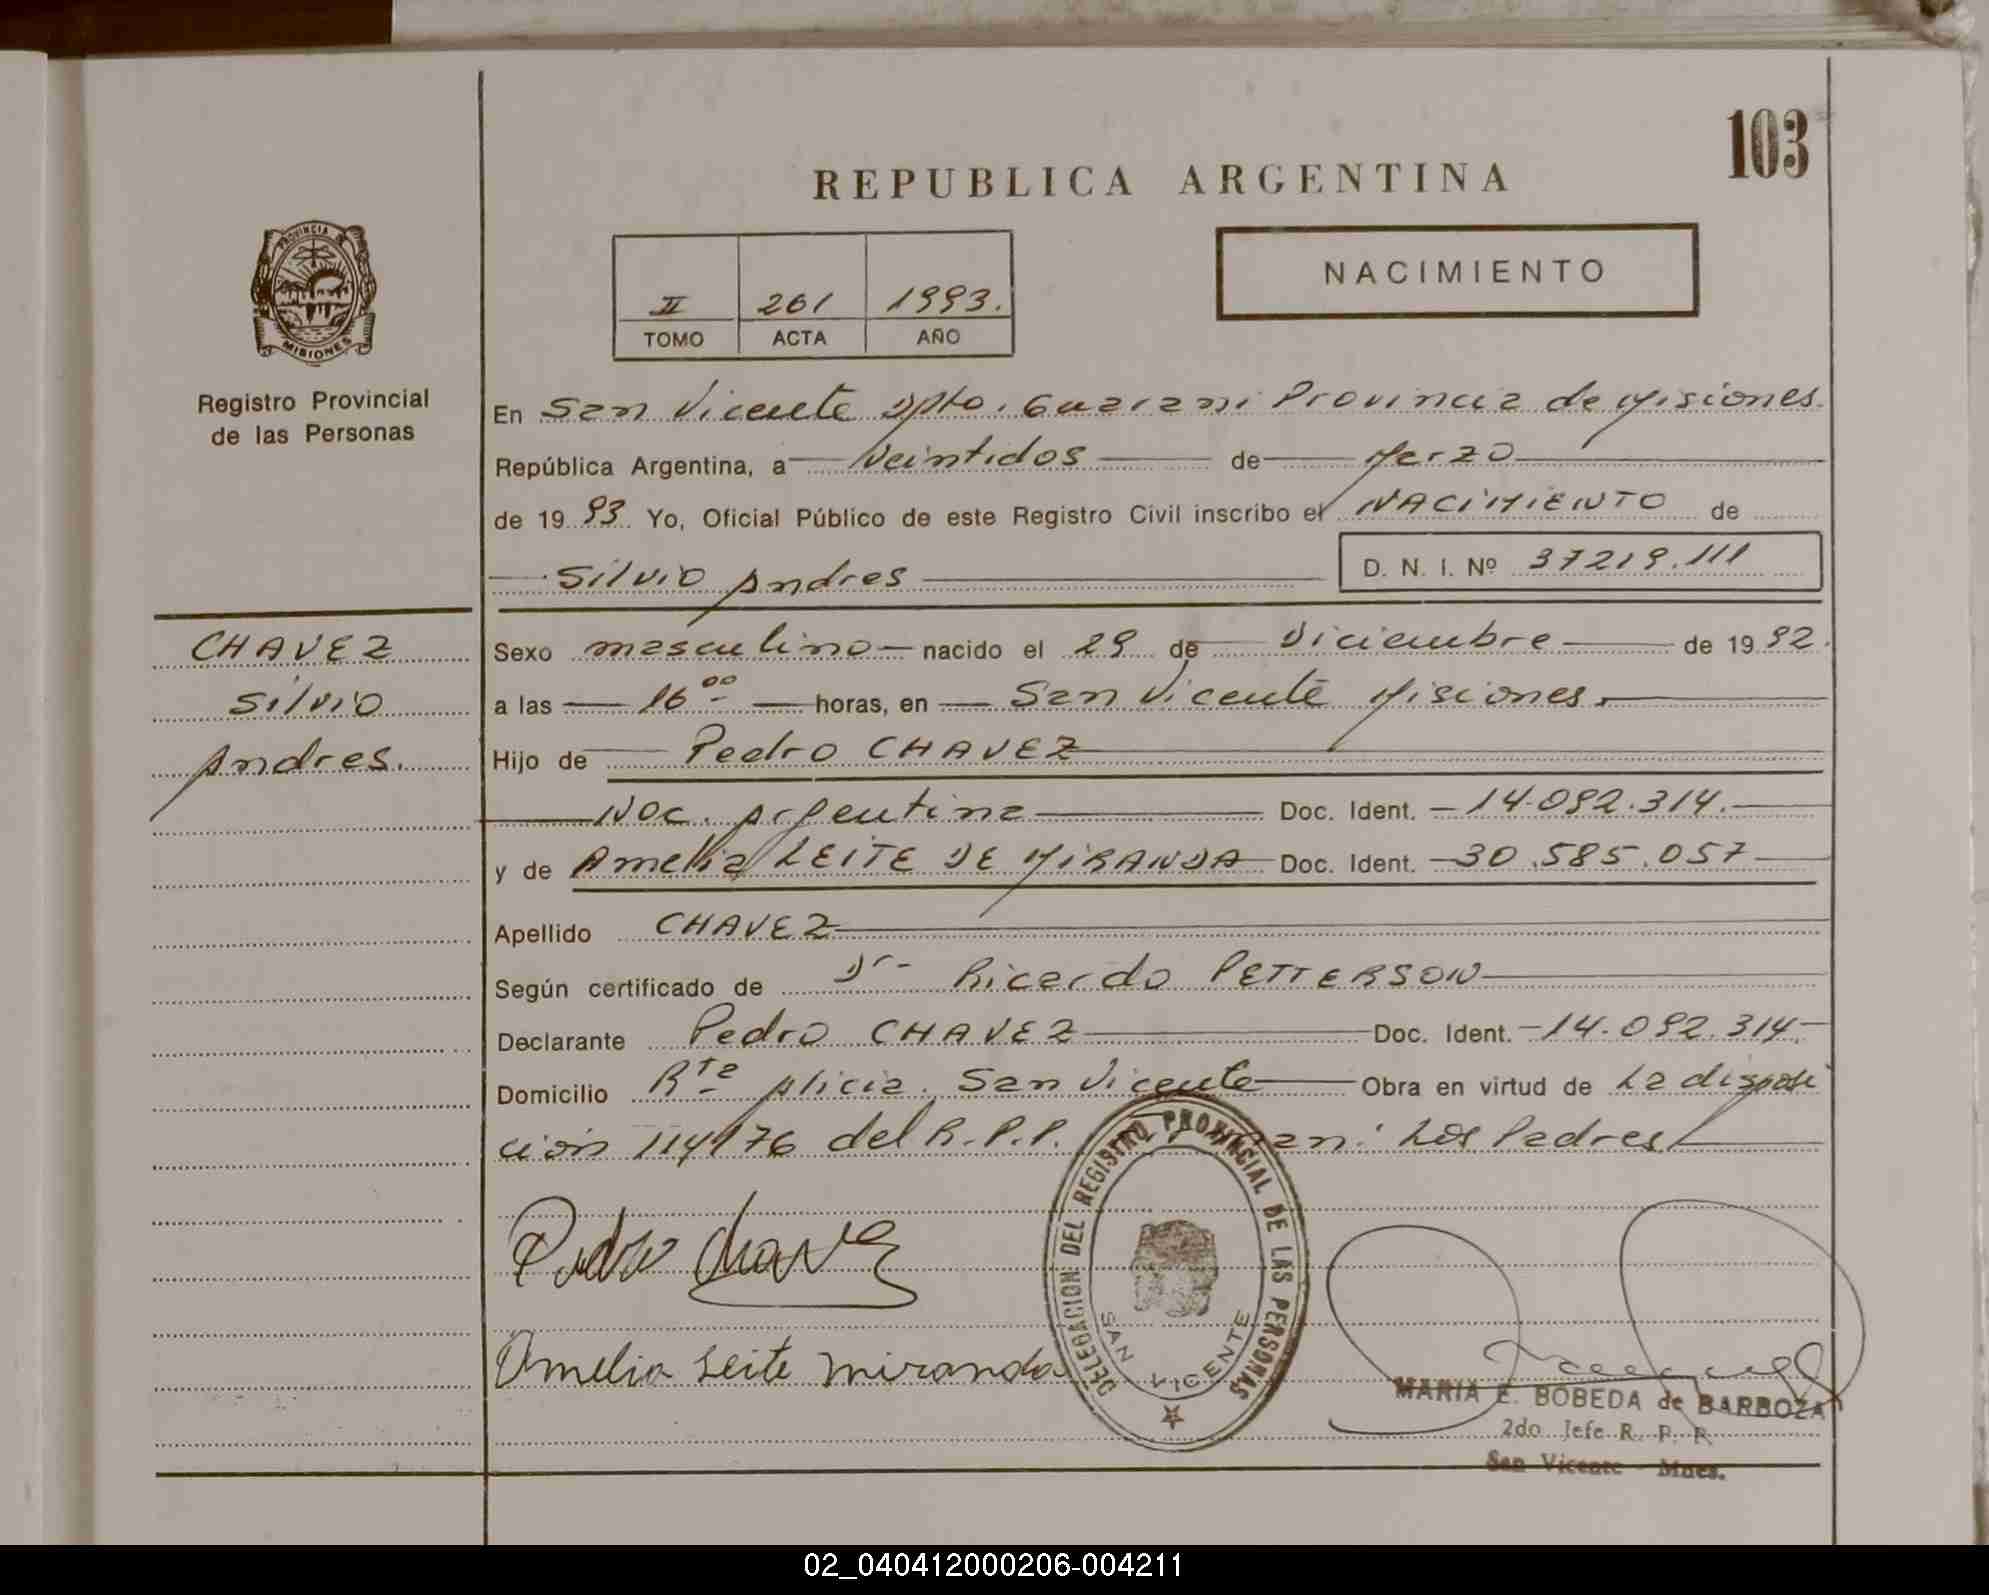 103
REPUBLICA ARGENTINA
PROVINCIA DE
MISIONES
Registro Provincial
de las Personas
II 261 1993.
TOMO ACTA AÑO
NACIMIENTO
En San Vicente Dpto. Guarani Provincia de Misiones.
República Argentina, a Veintidos de Marzo
de 1993 Yo, Oficial Público de este Registro Civil inscribo el NACIMIENTO de
Silvio Andres D. N. I. Nº 37219.111
CHAVEZ
Silvio
Andres.
Sexo masculino nacido el 29 de Diciembre de 1992.
a las 16 00 horas, en San Vicente Misiones.
Hijo de Pedro CHAVEZ
Nac. Argentina Doc. Ident. 14.092.314.
y de Amelia LEITE DE MIRANDA Doc. Ident. 30.585.057
Apellido CHAVEZ
Según certificado de Dr Ricardo PETTERSON
Declarante Pedro CHAVEZ Doc. Ident. 14.092.314.
Domicilio Rta Alicia. San Vicente Obra en virtud de La disposi
ción 114/76 del R.P.P. Los Padres
Pedro Chavez
Amelia Leite miranda
DELEGACION DEL REGISTRO PROVINCIAL DE LAS PERSONAS
SAN VICENTE
MARIA E. BOBEDA de BARBOZA
2do Jefe R. P. P.
San Vicente - Mnes.
02_040412000206-004211